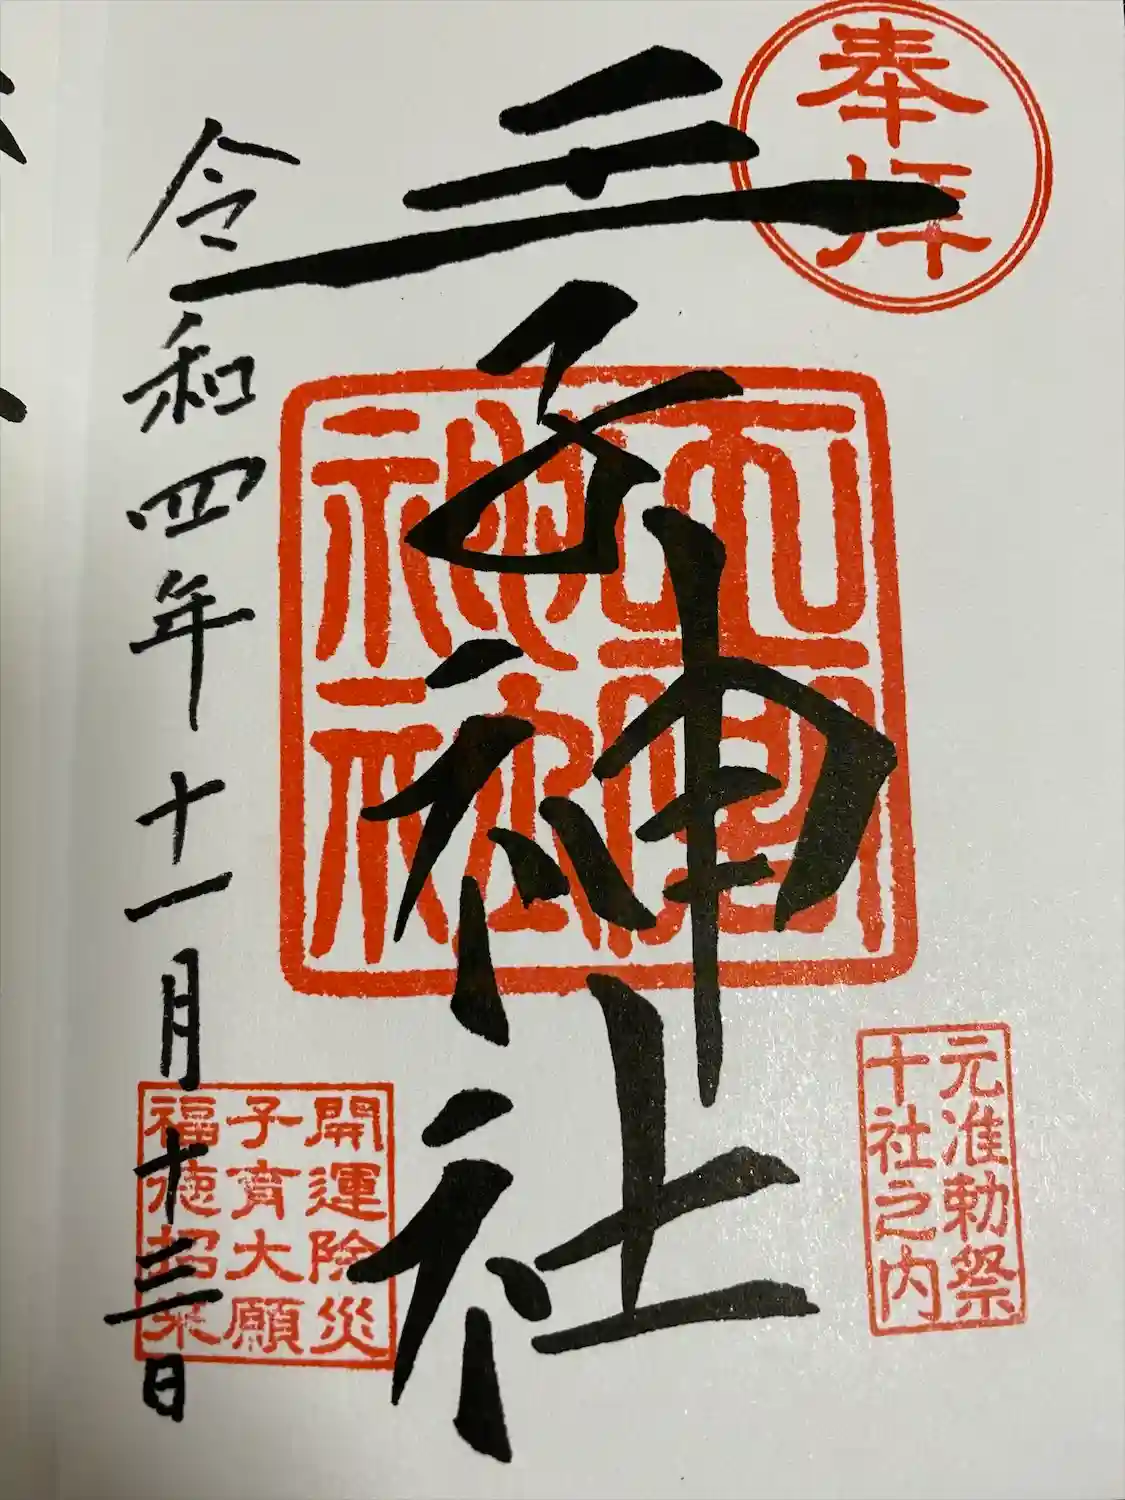 奉拝
元准勅祭
十社之内
王子神社
開運除災
子育大願
福徳招来
令和四年十一月十三日